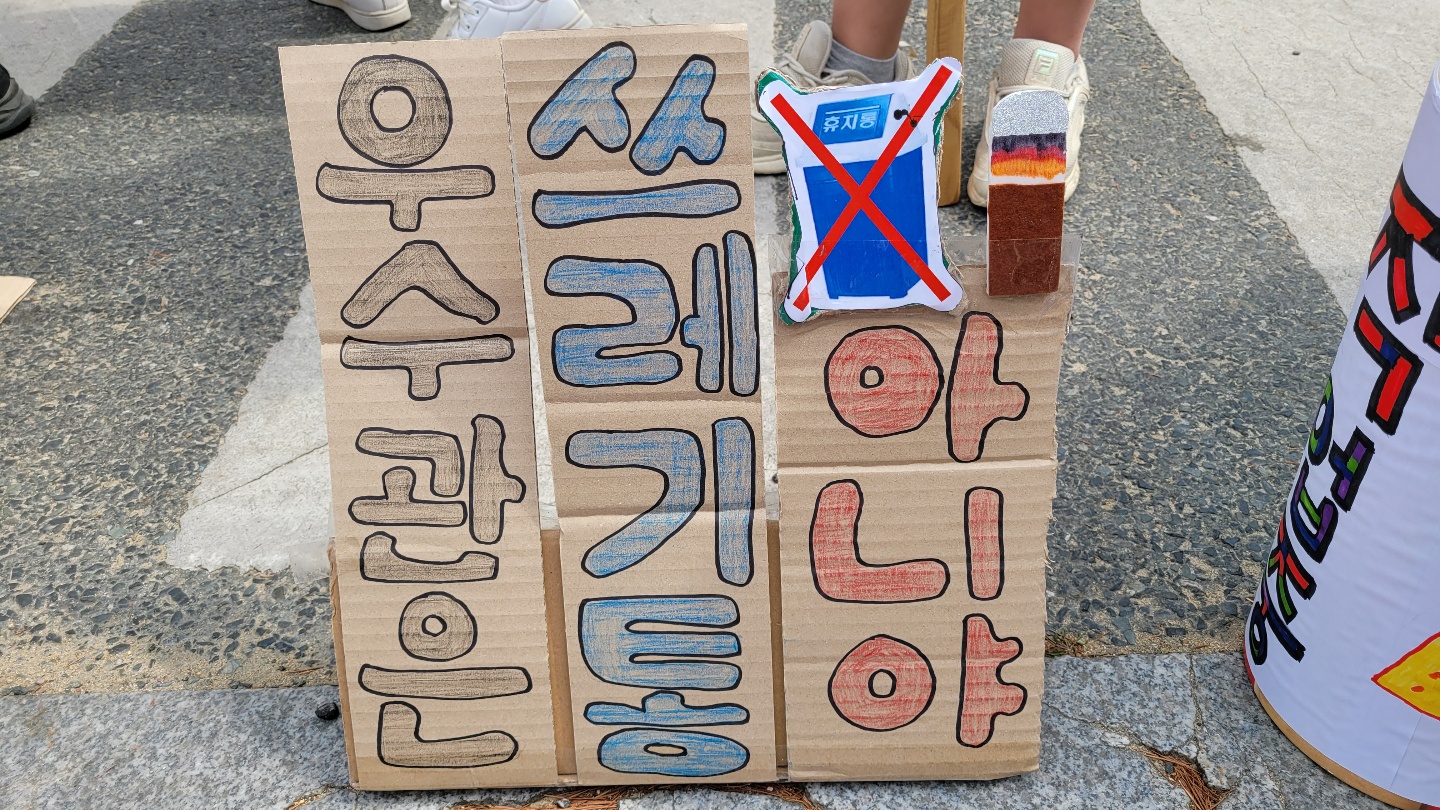 우수관은
쓰레기통
아니야
휴지통
지구